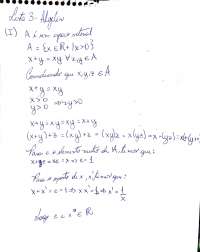 Lista 3 - Álgebra
(I) A é um espaço vetorial
A = {x ∈ ℝ | x > 0}
x + y = xy ∀ x, y ∈ A
Considerando que x, y, z ∈ A
x + y = xy
x > 0
y > 0 ⇒ xy > 0
x + y = xy = yx = y + x
(x+y)+z = (xy)+z = (xy)z = x(yz) =
Para o elemento neutro de A, temos que:
x + e = xe = x ⇒ e = 1
Para o oposto de x, x' temos que:
x + x' = e = 1 ⇒ x x' = 1 ⇒ x' = 1/x
Logo e ∈ ℝ